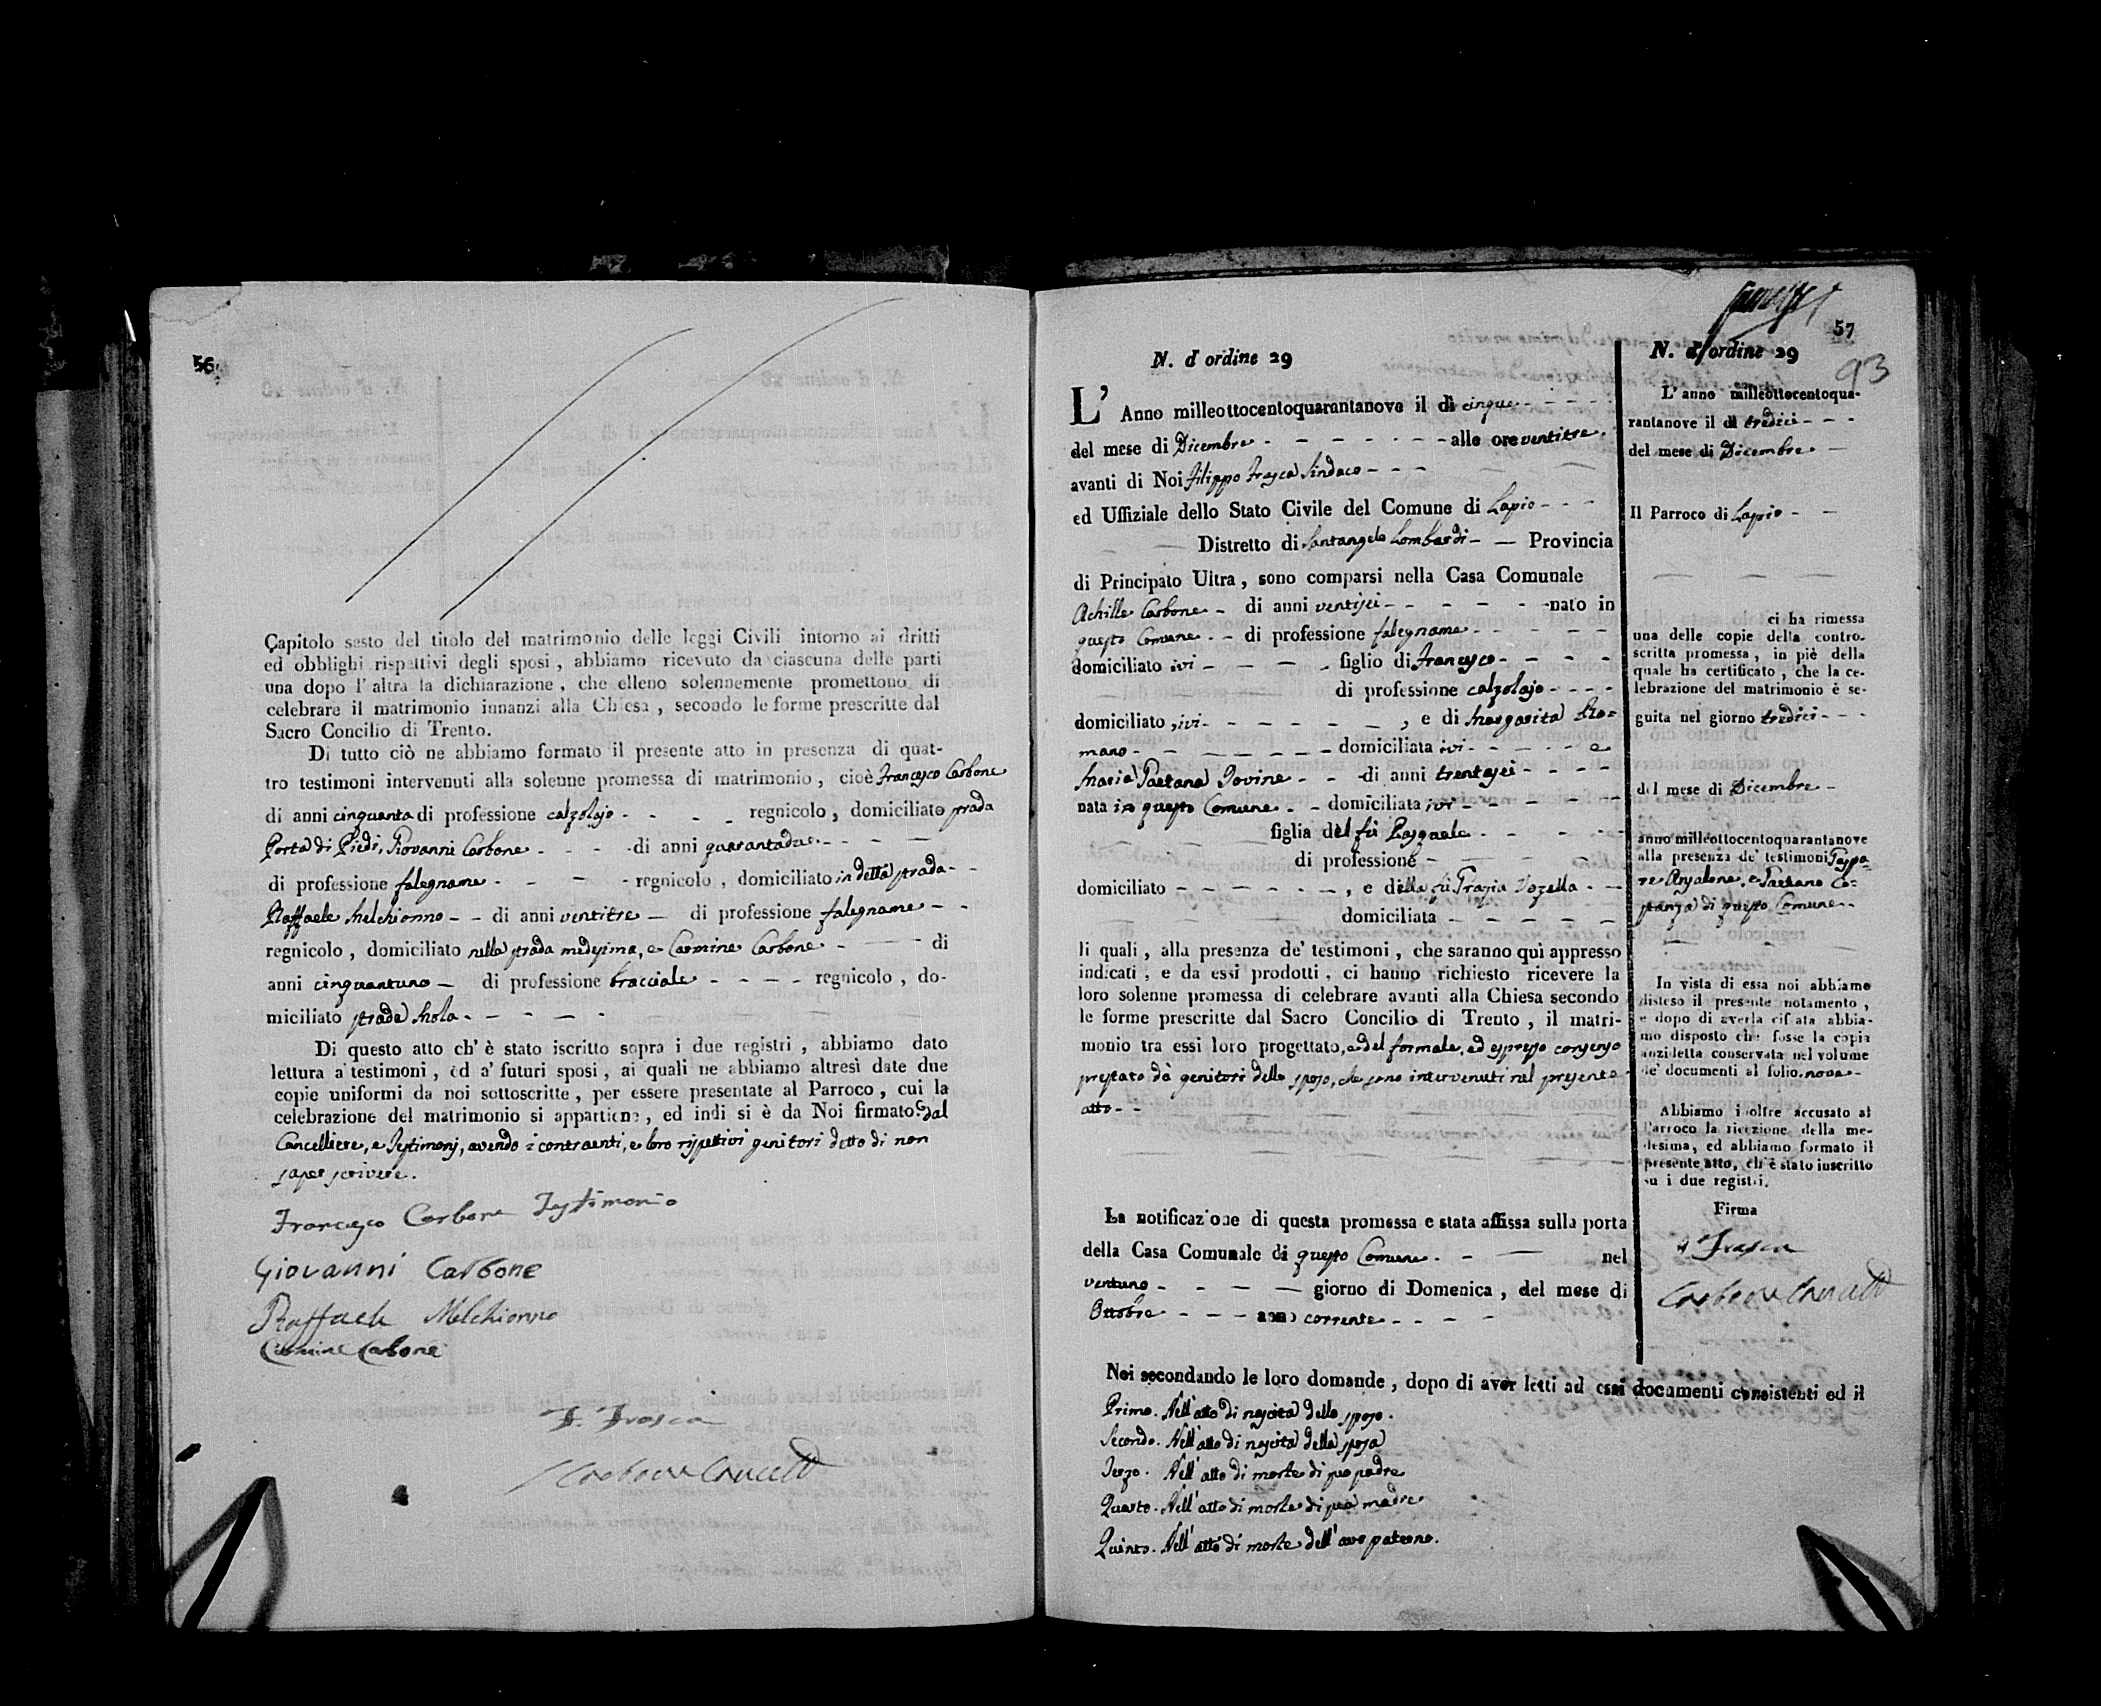 56
Capitolo sesto del titolo del matrimonio delle leggi Civili intorno ai dritti
ed obblighi rispettivi degli sposi, abbiamo ricevuto da ciascuna delle parti
una dopo l'altra la dichiarazione, che elleno solennemente promettono di
celebrare il matrimonio innanzi alla Chiesa, secondo le forme prescritte dal
Sacro Concilio di Trento.
Di tutto ciò ne abbiamo formato il presente atto in presenza di quat-
tro testimoni intervenuti alla solenne promessa di matrimonio, cioè Francesco Carbone
di anni cinquanta di professione calzolajo regnicolo, domiciliato strada
Porta di Piedi, Giovanni Carbone di anni quarantadue
di professione falegname regnicolo, domiciliato in detta strada
Raffaele Melchionno di anni ventitre di professione falegname
regnicolo, domiciliato nella strada medesima, e Carmine Carbone di
anni cinquantuno di professione bracciale regnicolo, do-
miciliato strada Mola
Di questo atto ch'è stato iscritto sopra i due registri, abbiamo dato
lettura a' testimoni, ed a' futuri sposi, ai quali ne abbiamo altresì date due
copie uniformi da noi sottoscritte, per essere presentate al Parroco, cui la
celebrazione del matrimonio si appartiene, ed indi si è da Noi firmato, dal
Cancelliere, e Testimonj, avendo i contraenti, e loro rispettivi genitori detto di non
saper scrivere.
Francesco Carbone Testimonio
Giovanni Carbone
Raffaele Melchionno
Carmine Carbone
F. Frasca
Carbone Cancell
57
93
N. d'ordine 29
L'Anno milleottocentoquarantanove il dì cinque
del mese di Dicembre alle ore ventitre
avanti di Noi Filippo Frasca Sindaco
ed Uffiziale dello Stato Civile del Comune di Lapio
Distretto di Santangelo Lombardi Provincia
di Principato Ultra, sono comparsi nella Casa Comunale
Achille Carbone di anni ventisei nato in
questo Comune di professione falegname
domiciliato ivi figlio di Francesco
di professione calzolajo
domiciliato, ivi, e di Margarita Ro=
mano domiciliata ivi e
Maria Gaetana Iovine di anni trentasei
nata in questo Comune domiciliata ivi
figlia del fù Pasquale
di professione
domiciliato, e della fù Grazia Vozella
domiciliata
li quali, alla presenza de' testimoni, che saranno qui appresso
indicati, e da essi prodotti, ci hanno richiesto ricevere la
loro solenne promessa di celebrare avanti alla Chiesa secondo
le forme prescritte dal Sacro Concilio di Trento, il matri-
monio tra essi loro progettato, e del formale, ed espresso consenso
prestato dà genitori dello sposo, che sono intervenuti nel presente
atto
La notificazione di questa promessa e stata affissa sulla porta
della Casa Comunale di questo Comune nel
ventuno giorno di Domenica, del mese di
Ottobre anno corrente
Noi secondando le loro domande, dopo di aver letti ad essi documenti consistenti ed il
Primo. Nell'atto di nascita dello sposo.
Secondo. Nell'atto di nascita della sposa
Terzo. Nell'atto di morte di suo padre
Quarto. Nell'atto di morte di sua madre
Quinto. Nell'atto di morte dell'avo paterno.
N. d'ordine 29
L'anno milleottocentoqua-
rantanove il dì tredici
del mese di Dicembre
Il Parroco di Lapio
ci ha rimessa
una delle copie della contro-
scritta promessa, in piè della
quale ha certificato, che la ce-
lebrazione del matrimonio è se-
guita nel giorno tredici
del mese di Dicembre
anno milleottocentoquarantanove
alla presenza de' testimoni Gaspa=
re Anzalone, e Gaetano Co=
stanza di questo Comune
In vista di essa noi abbiamo
disteso il presente notamento,
e dopo di averla cifrata abbia-
mo disposto che fosse la copia
anzidetta conservata nel volume
de' documenti al folio nove
Abbiamo inoltre accusato al
Parroco la ricezione della me-
desima, ed abbiamo formato il
presente atto, ch'è stato inscritto
su i due registri.
Firma
F. Frasca
Carbone Cancell